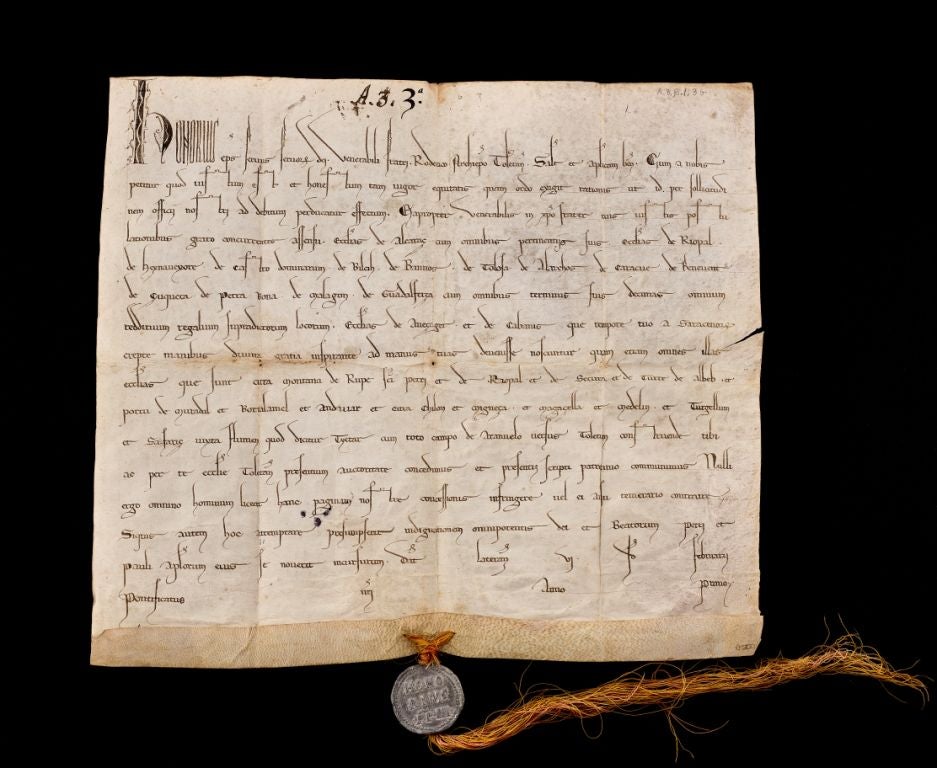 A.3.3ª
A.3.G.1.36
HONORIUS eps servus servorū di. Venerabili fratri Roderico Archiepo Toletan. Salt et aplicam ben. Cum a nobis
petitur quod iustum est et honestum tam vigor equitatis quam ordo exigit rationis ut id per sollicitudi
nem officii nostri ad debitum perducatur effectum. Eapropter venerabilis in xpo frater tuis iustis postu
lationibus grato concurrentes assensu. Ecclias de Alcaraz cum omnibus pertinentiis suis ecclias de Riopal
de de Castro dominarum de Bilch de Bannos de Tolosa de Alarchos de Caracue de Benevent
de Çuqueca de Petra bona de Malagon de Guadalferza cum omnibus terminis suis decimas omnium
reddituum regalium supradictorum locorum. Ecclias de et de Cabanis que tempore tuo a Saracenorū
erepte manibus divina gratia inspirante ad manus tuas devenisse noscuntur quam etiam omnes illas
ecclias que sunt citra montana de Rupe sci petri et de Riopal et de Secura et de Turre de Albeb et
portu de Muradal et Borialamel et Andujar et Chilon et Migneça et Magacella et Medelin et Turgellum
et iuxta flumen quod dicitur Tyetar cum toto campo de Aranuelo versus Toletum constitutas tibi
ac per te ecclie Toletan presentium auctoritate concedimus et presentis scripti patrocinio communimus Nulli
ergo omnino hominum liceat hanc paginam nostre concessionis infringere vel ei ausu temerario contraire
Siquis autem hoc attemptare presumpserit indignationem omnipotentis dei et Beatorum Petri et
Pauli Aplorum eius se noverit incursurum. Dat Lateran vi februarii
Pontificatus nri Anno Primo
HONO
RIUS
PP III